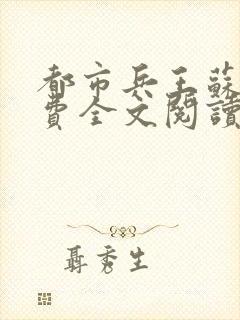 都市兵王蘇
費全文閱讀
聶秀生